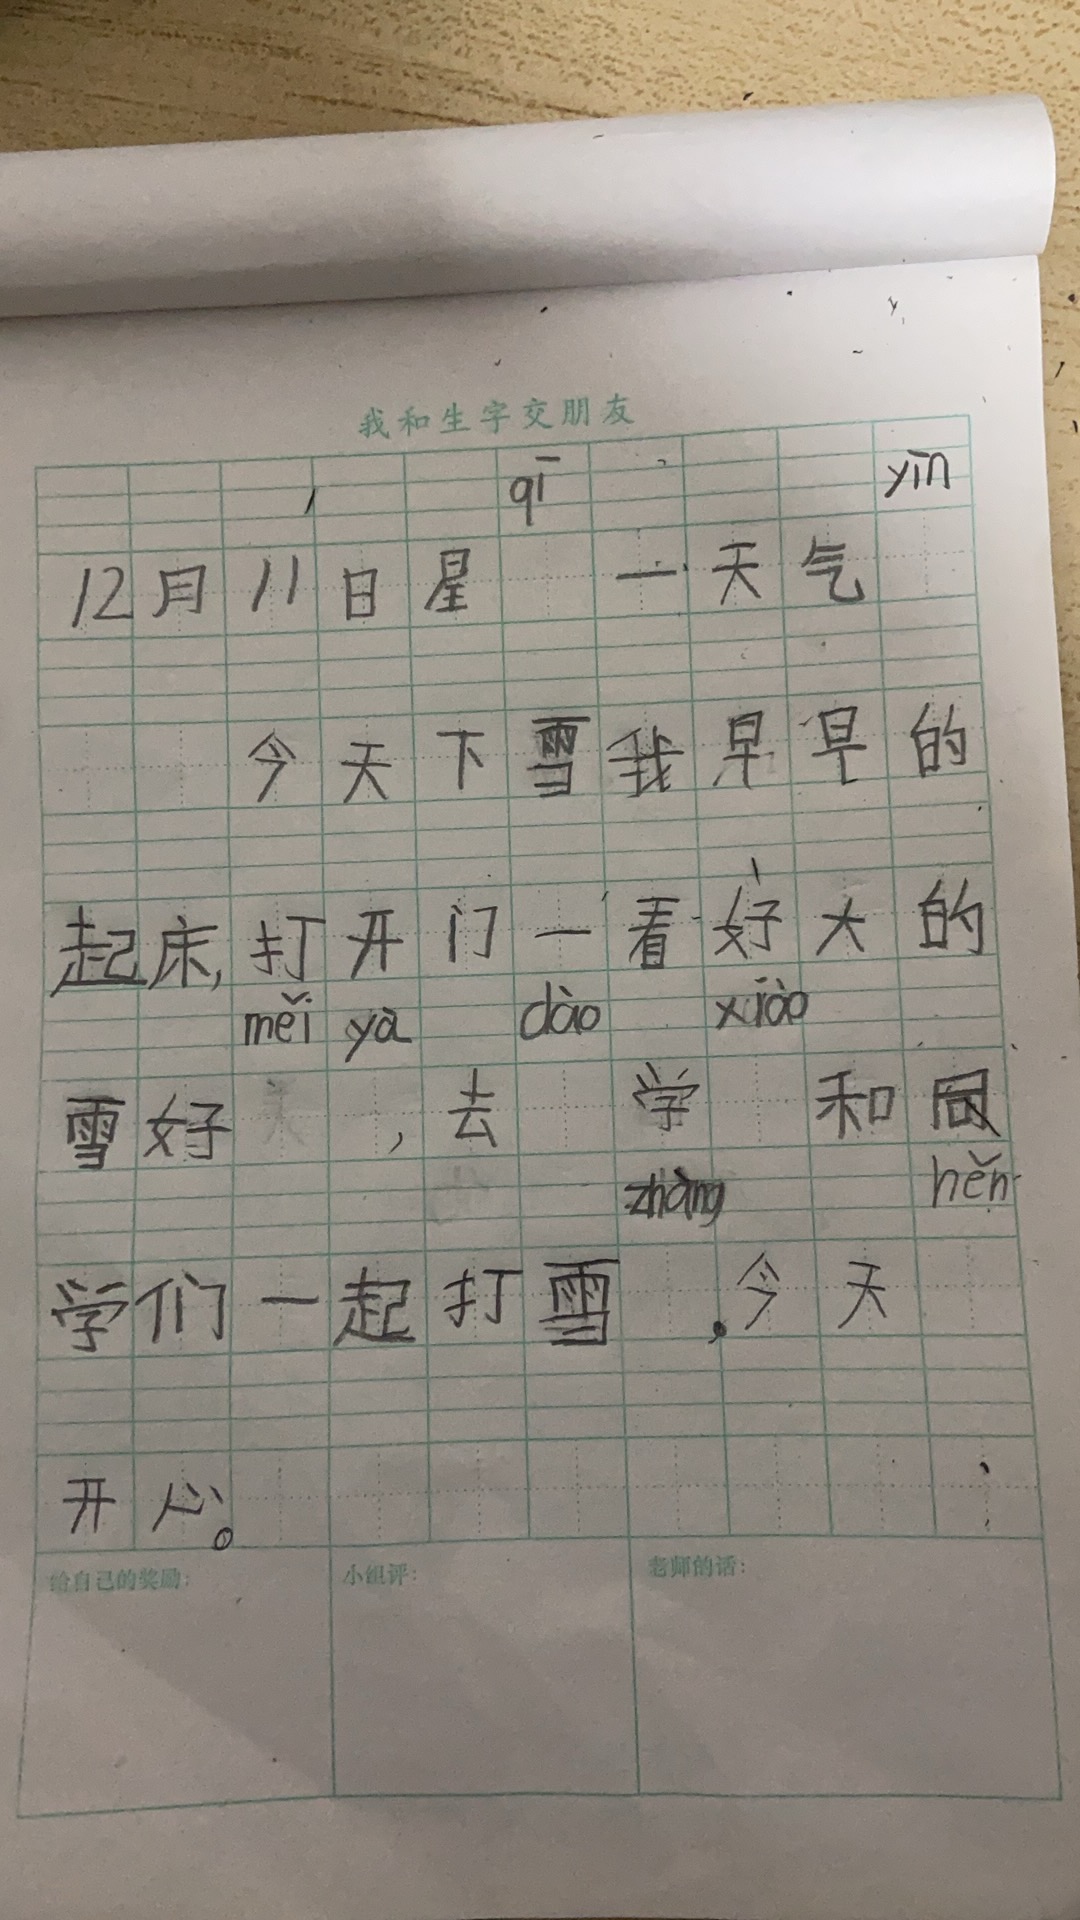 我和生字交朋友
qī yīn
12月11日星 一天气
今天下雪我早早的
起床,打开门一看好大的
měi yà dào xiào
雪好 ,去 学 和同
zhàng hěn
学们一起打雪 .今天
开心。
给自己的奖励: 小组评: 老师的话: